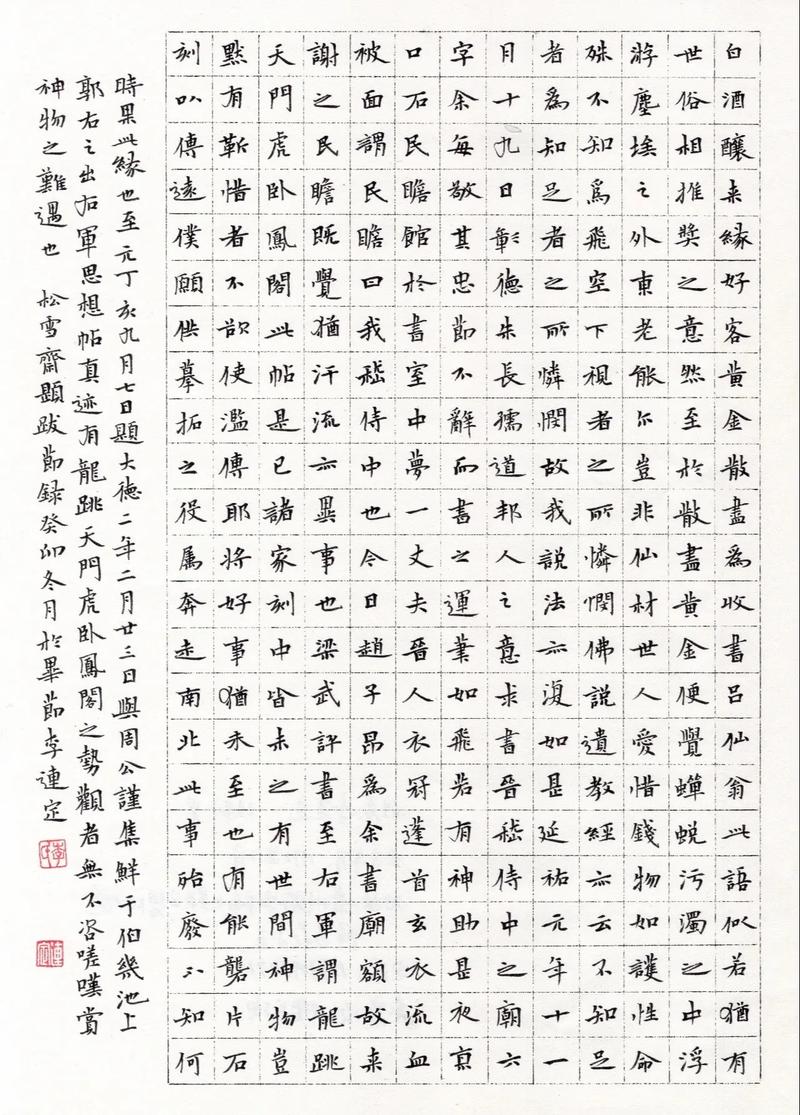 白酒釀来緣好客黃金散盡為收書呂仙翁此語似若猶有
世俗相推獎之意然至於散盡黃金便覺蟬蛻污濁之中浮
游塵埃之外東老能尓豈非仙材世人愛惜錢物如護性命
殊不知為飛空下視者之所憐憫佛說遺教經亦云不知足
者為知足者之所憐憫故我說法亦復如是延祐元年十一
月十九日彰德朱長孺道邦人之意求書晉嵇侍中之廟六
字余每敬其忠節不辭而書之運筆如飛若有神助是夜真
口石民瞻館於書室中夢一丈夫晉人衣冠蓬首玄衣流血
被面謂民瞻曰我嵇侍中也今日趙子昂為余書廟額故来
謝之民瞻既覺猶汗流亦異事也梁武評書至右軍謂龍跳
天門虎卧鳳閣此帖是已諸家刻中皆未之有世間神物豈
默有靳惜者不欲使濫傳耶將好事猶未至也有能礱片石
刻以傳遠僕願供摹拓之役属奔走南北此事殆廢不知何
時果此緣也至元丁亥九月七日題大德二年二月廿三日與周公謹集鮮于伯幾池上
郭右之出右軍思想帖真迹有龍跳天門虎卧鳳閣之勢觀者無不咨嗟嘆賞
神物之難遇也 松雪齋題跋節録癸卯冬月於畢節李連定